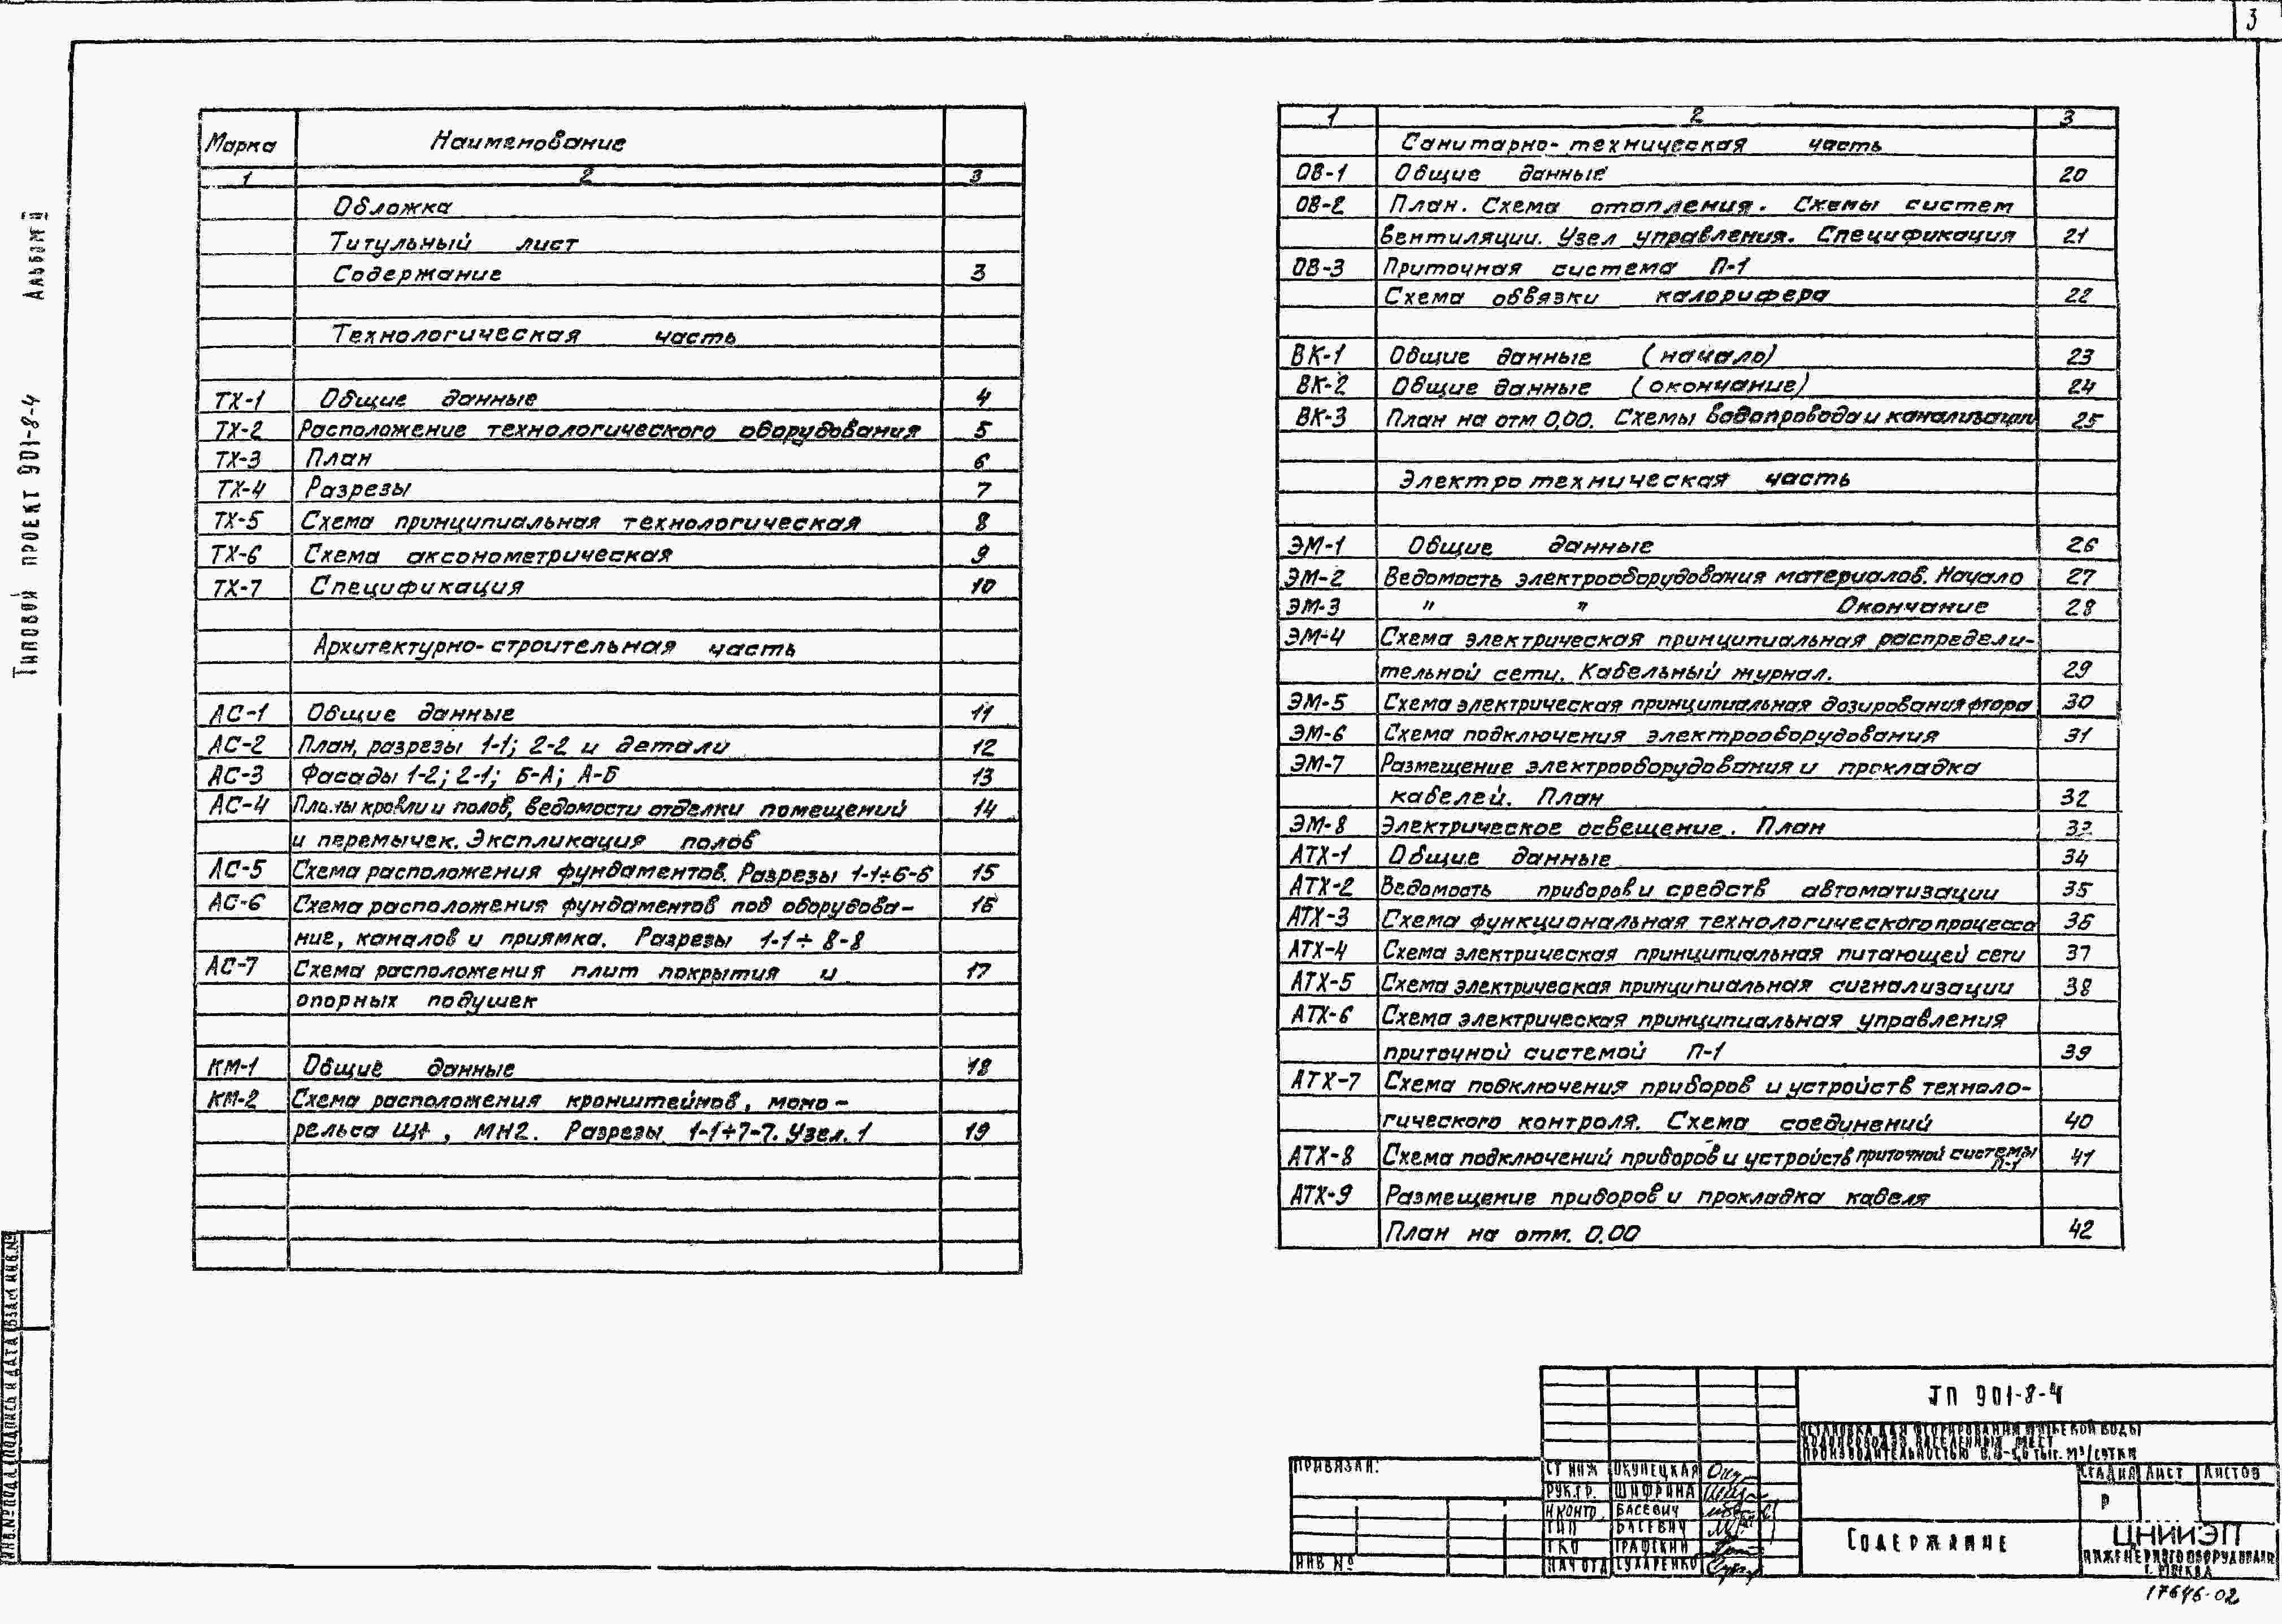 3
Альбом II
Типовой проект 901-8-4
Марка Наименование
1 2 3
Обложка
Титульный лист
Содержание 3
Технологическая часть
ТХ-1 Общие данные 4
ТХ-2 Расположение технологического оборудования 5
ТХ-3 План 6
ТХ-4 Разрезы 7
ТХ-5 Схема принципиальная технологическая 8
ТХ-6 Схема аксонометрическая 9
ТХ-7 Спецификация 10
Архитектурно-строительная часть
АС-1 Общие данные 11
АС-2 План, разрезы 1-1; 2-2 и детали 12
АС-3 Фасады 1-2; 2-1; Б-А; А-Б 13
АС-4 Планы кровли и полов, ведомости отделки помещений 14
и перемычек. Экспликация полов
АС-5 Схема расположения фундаментов. Разрезы 1-1÷6-6 15
АС-6 Схема расположения фундаментов под оборудова- 16
ние, каналов и приямка. Разрезы 1-1÷8-8
АС-7 Схема расположения плит покрытия и 17
опорных подушек
КМ-1 Общие данные 18
КМ-2 Схема расположения кронштейнов, моно-
рельса , МН2. Разрезы 1-1÷7-7. Узел. 1 19
1 2 3
Санитарно-техническая часть
ОВ-1 Общие данные 20
ОВ-2 План. Схема отопления. Схемы систем
вентиляции. Узел управления. Спецификация 21
ОВ-3 Приточная система П-1
Схема обвязки калорифера 22
ВК-1 Общие данные (начало) 23
ВК-2 Общие данные (окончание) 24
ВК-3 План на отм 0,00. Схемы водопровода и канализации 25
Электротехническая часть
ЭМ-1 Общие данные 26
ЭМ-2 Ведомость электрооборудования материалов. Начало 27
ЭМ-3 " " Окончание 28
ЭМ-4 Схема электрическая принципиальная распредели-
тельной сети. Кабельный журнал. 29
ЭМ-5 Схема электрическая принципиальная дозирования фтора 30
ЭМ-6 Схема подключения электрооборудования 31
ЭМ-7 Размещение электрооборудования и прокладка
кабелей. План 32
ЭМ-8 Электрическое освещение. План 33
АТХ-1 Общие данные 34
АТХ-2 Ведомость приборов и средств автоматизации 35
АТХ-3 Схема функциональная технологического процесса 36
АТХ-4 Схема электрическая принципиальная питающей сети 37
АТХ-5 Схема электрическая принципиальная сигнализации 38
АТХ-6 Схема электрическая принципиальная управления
приточной системой П-1 39
АТХ-7 Схема подключения приборов и устройств техноло-
гического контроля. Схема соединений 40
АТХ-8 Схема подключений приборов и устройств приточной системы П-1 41
АТХ-9 Размещение приборов и прокладка кабеля
План на отм. 0.00 42
ТП 901-8-4
Установка для фторирования питьевой воды
водопроводов населенных мест
производительностью тыс. м³/сутки
Привязан:
Инв №
Ст инж Окунецкая
Рук.гр. Шифрина
Н контр. Басевич
ГИП Басевич
ГКО Графский
Нач отд Сухаренко
Стадия Лист Листов
Р
Содержание
ЦНИИЭП
инженерного оборудования
г. Москва
17646-02
Инв.№ подл Подпись и дата Взам инв.№